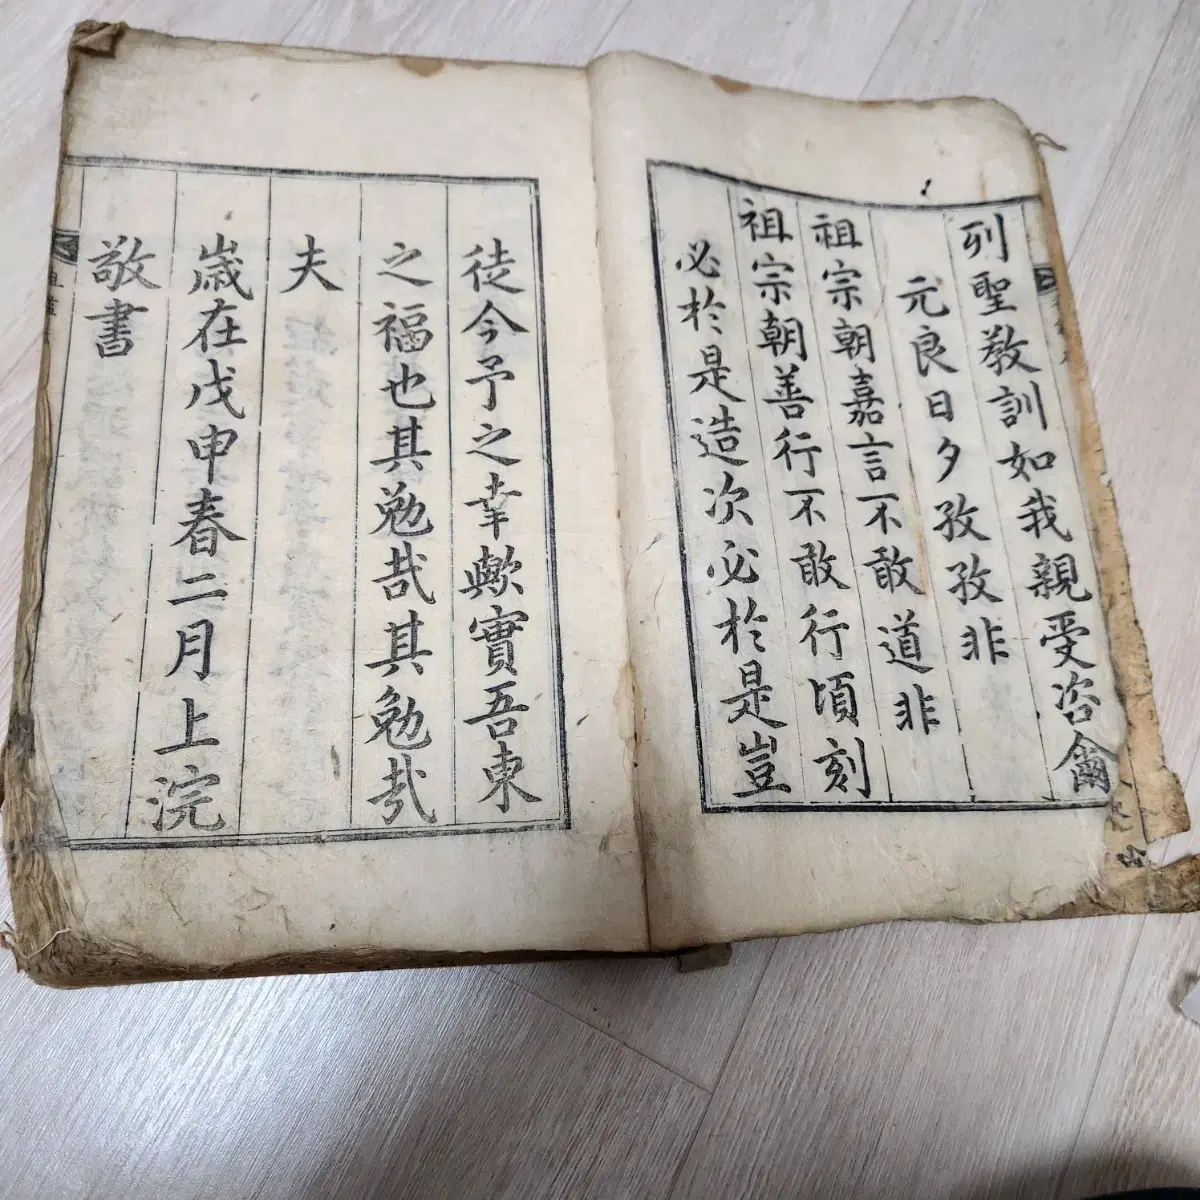 列聖敎訓如我親受咨爾
元良日夕孜孜非
祖宗朝嘉言不敢道非
祖宗朝善行不敢行頃刻
必於是造次必於是豈
徒今予之幸歟實吾東
之福也其勉哉其勉哉
夫
歲在戊申春二月上浣
敬書